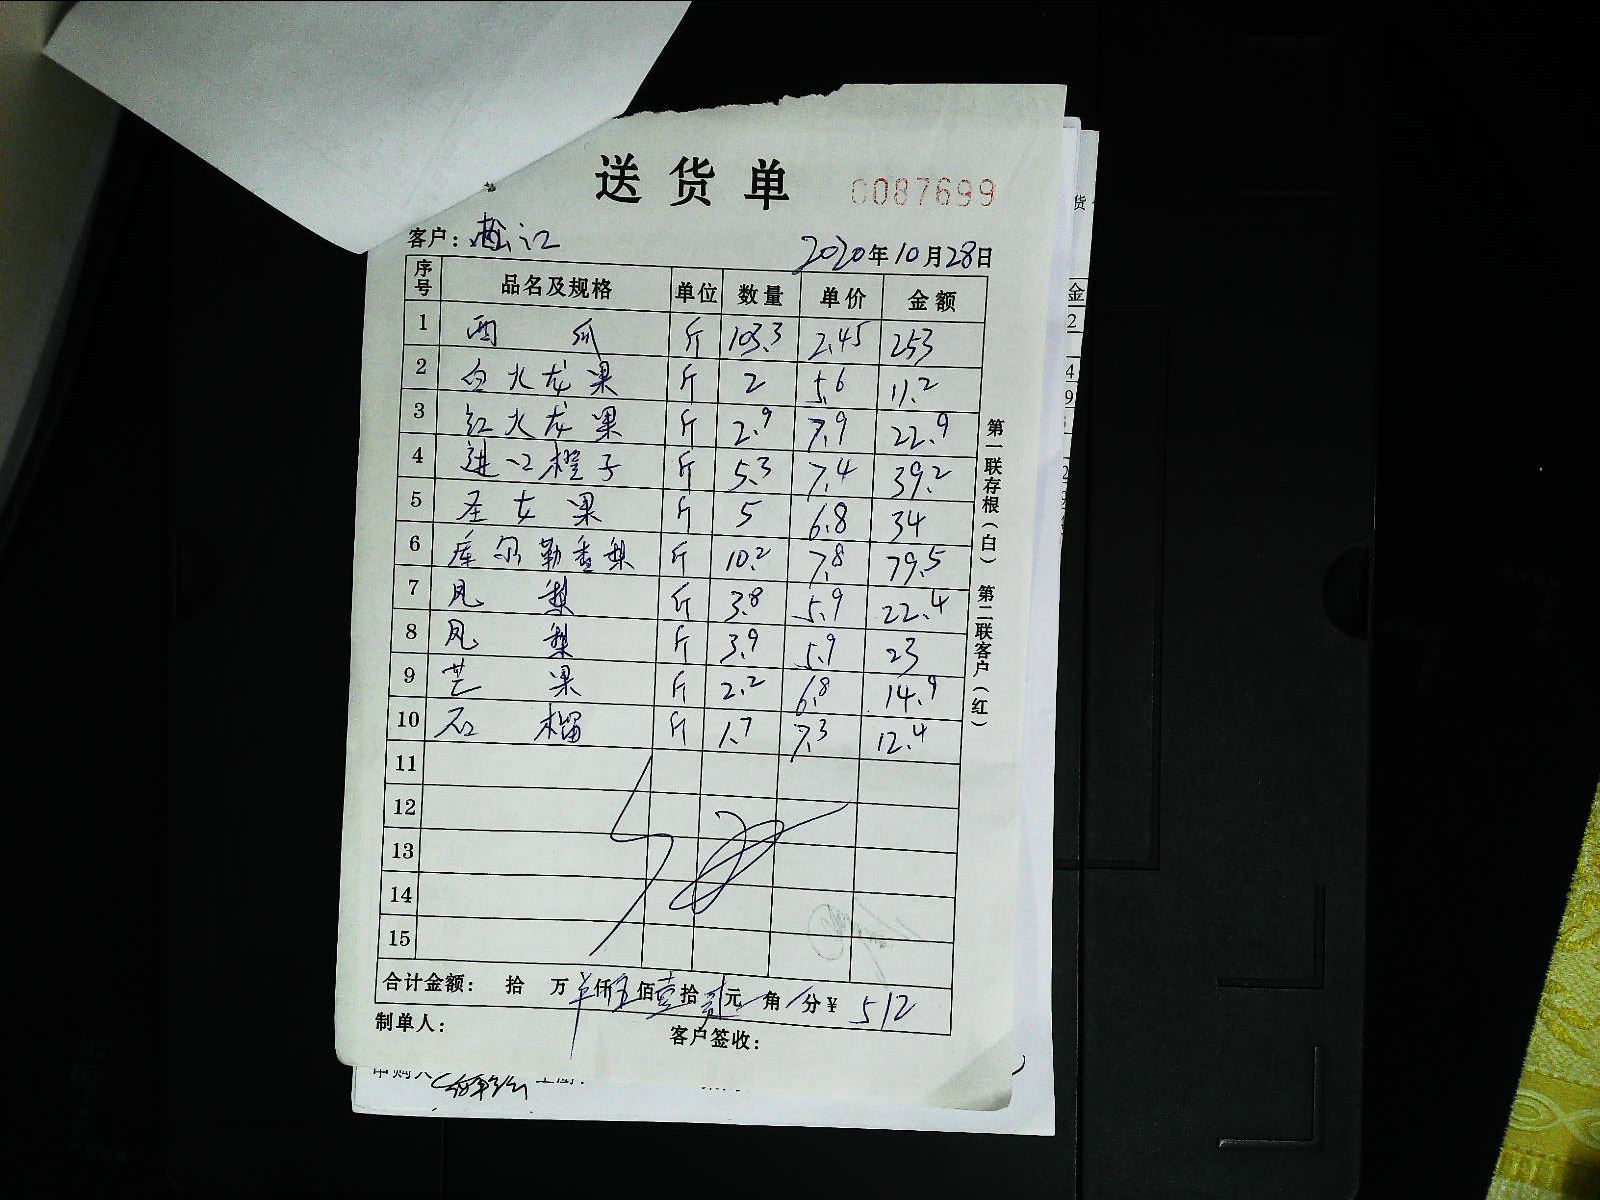 送货单 0087699
客户：松江 2020年10月28日
序号 品名及规格 单位 数量 单价 金额
1 西瓜 斤 103.3 2.45 253
2 白火龙果 斤 2 5.6 11.2
3 红火龙果 斤 2.9 7.9 22.9
4 进口橙子 斤 5.3 7.4 39.2
5 圣女果 斤 5 6.8 34
6 库尔勒香梨 斤 10.2 7.8 79.5
7 凤梨 斤 3.8 5.9 22.4
8 凤梨 斤 3.9 5.9 23
9 芒果 斤 2.2 6.8 14.9
10 石榴 斤 1.7 7.3 12.4
11
12
13
14
15
合计金额： 拾 万 仟伍佰壹拾贰元 角 分￥ 512
制单人： 客户签收：
第一联存根（白） 第二联客户（红）
货
金
2
4
9